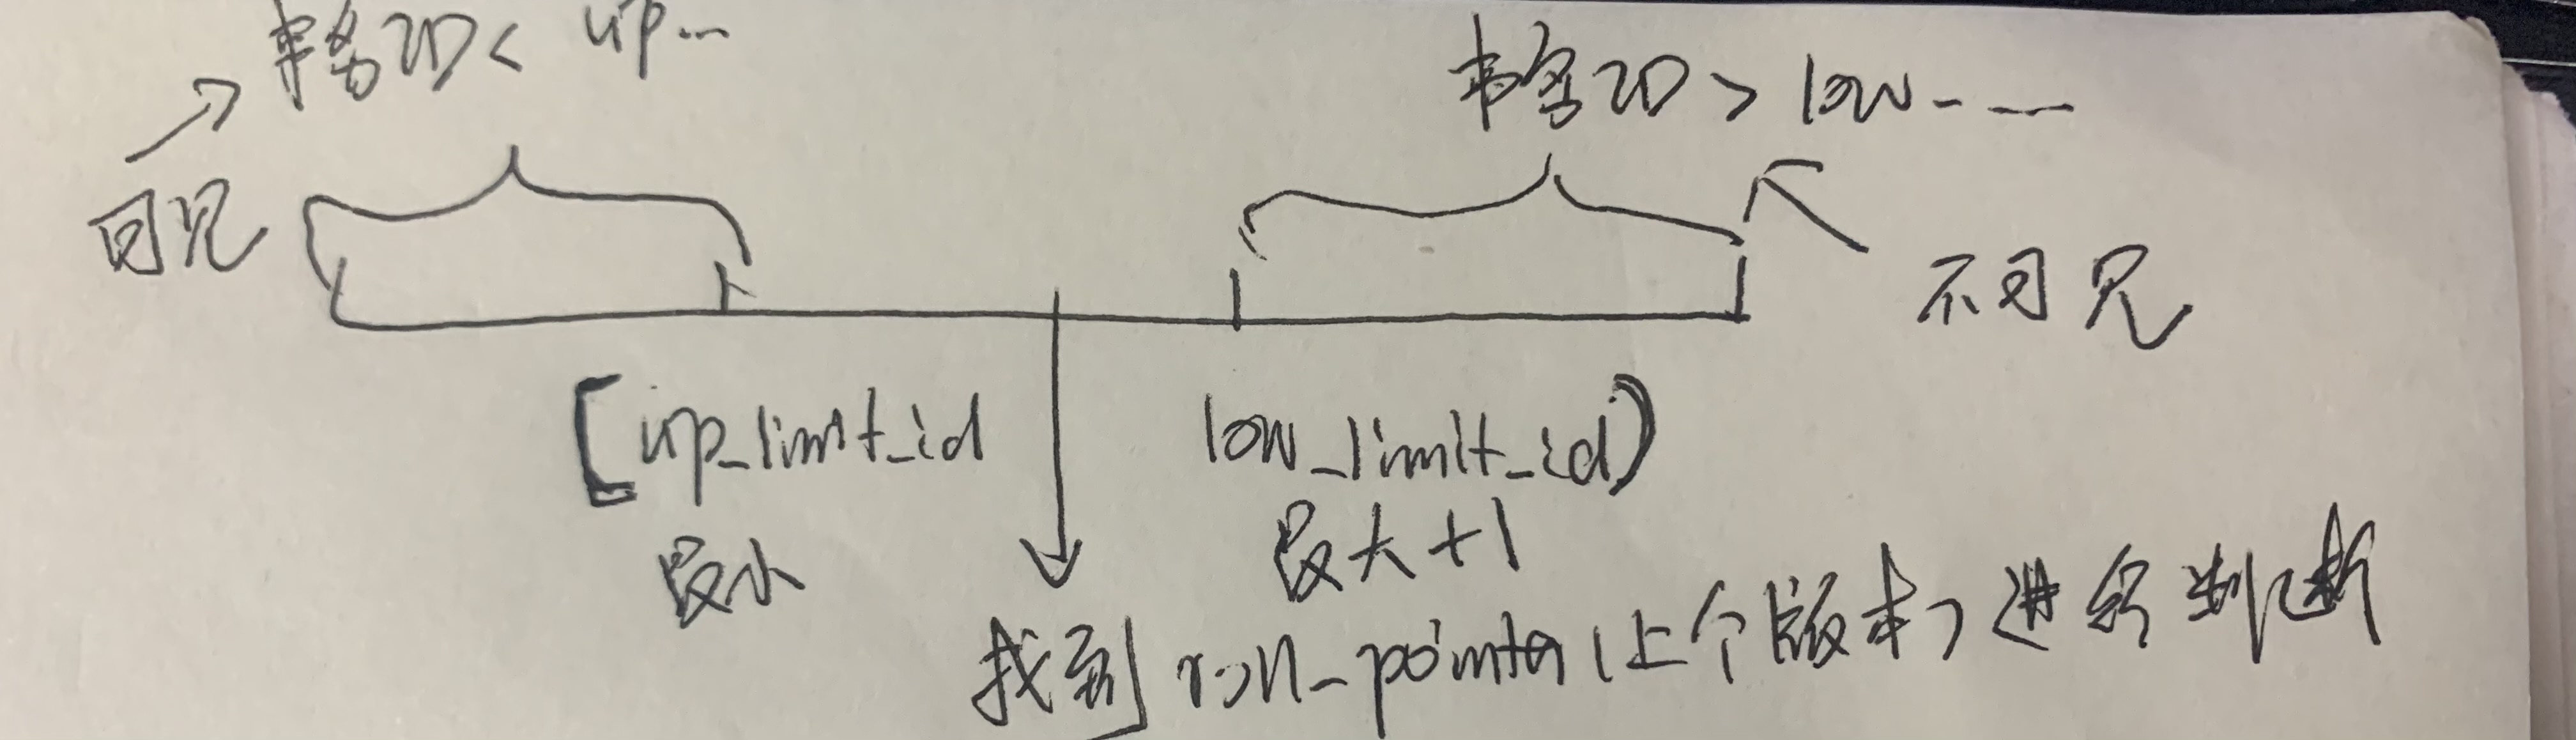 事务ID < up...
事务ID > low-——
可见
不可见
[up_limit_id
low_limit_id)
最小
最大+1
找到roll_pointer(上个版本)进行判断